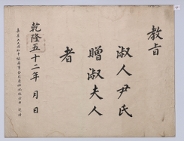 教旨
淑人尹氏
贈淑夫人
者
乾隆五十二年 月 日